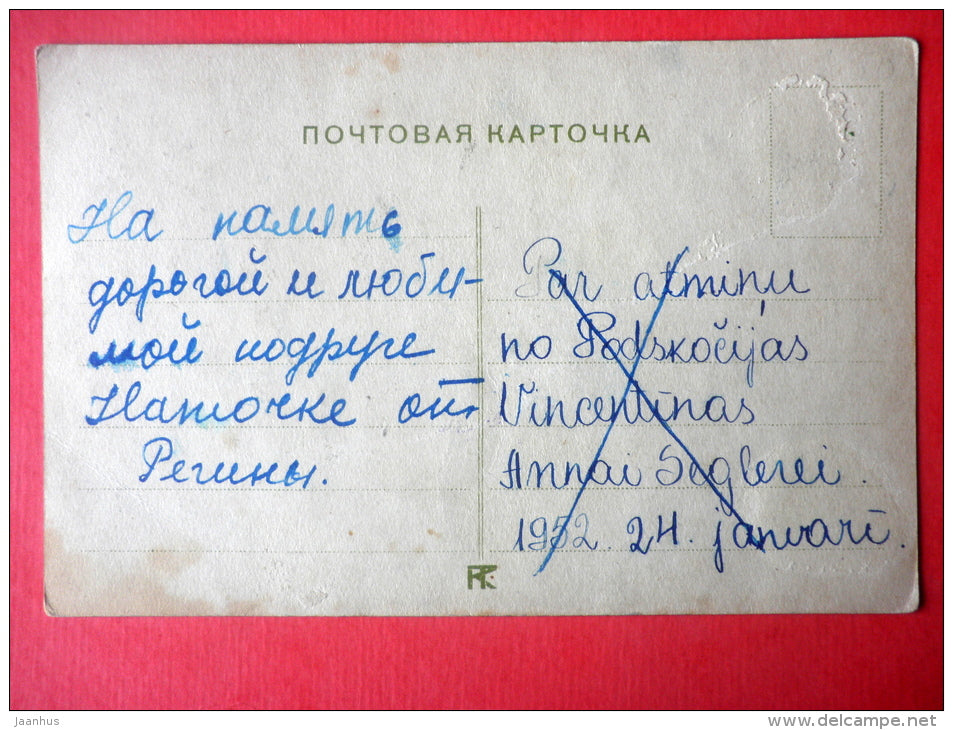 ПОЧТОВАЯ КАРТОЧКА
На память
дорогой и люби-
мой подруге
Наточке от
Регины.
Par atmiņu
no Podskočijas
Vincentīnas
Annai Seglerei.
1952. 24. janvarī.
Jaanhus
www.delcampe.net